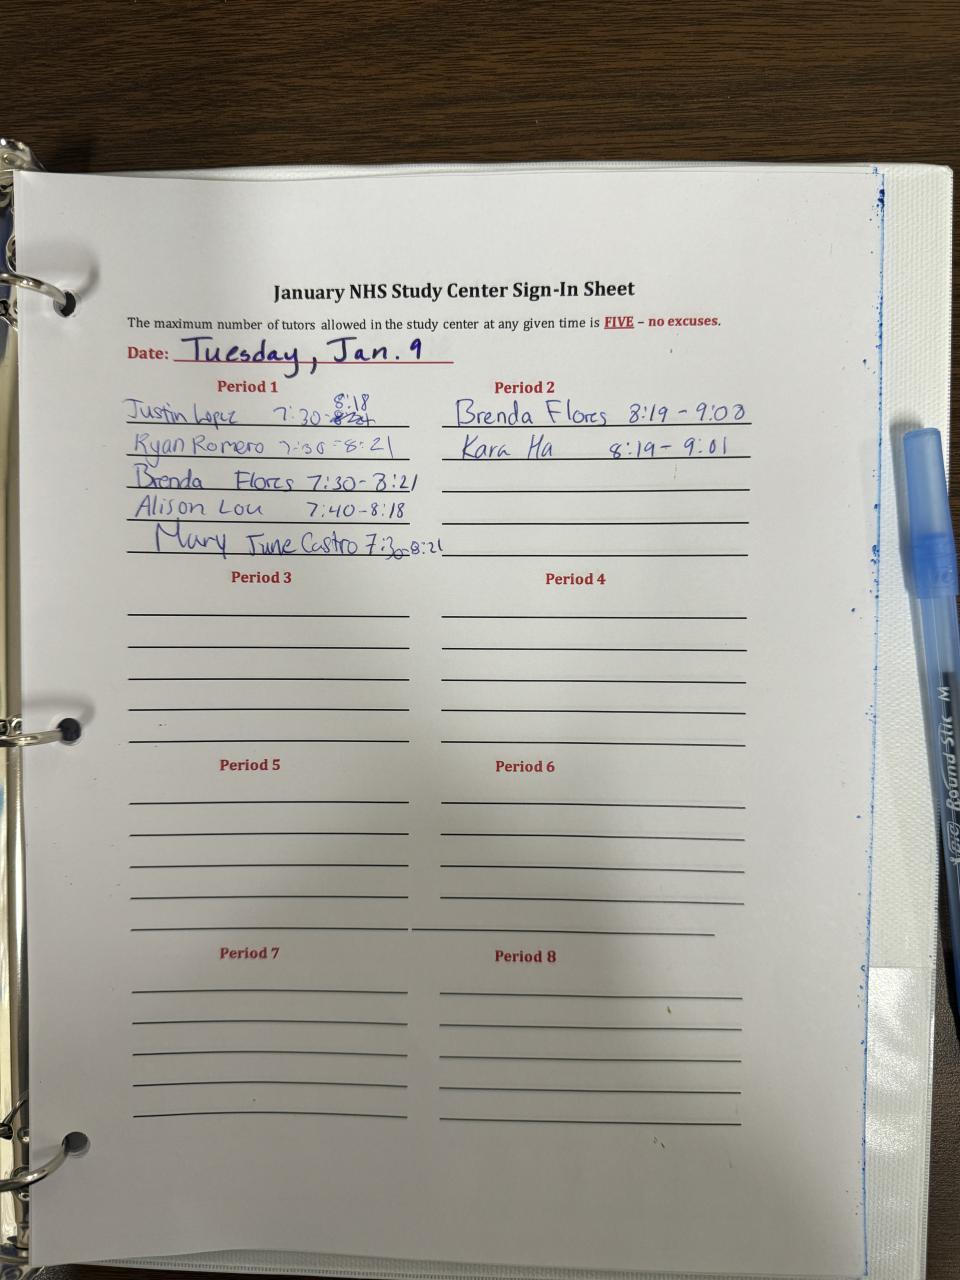 January NHS Study Center Sign-In Sheet
The maximum number of tutors allowed in the study center at any given time is FIVE – no excuses.
Date: Tuesday, Jan. 9
Period 1
Justin Lopez 7:30-8:18
Ryan Romero 7:30-8:21
Brenda Flores 7:30-8:21
Alison Lou 7:40-8:18
Mary June Castro 7:30-8:21
Period 2
Brenda Flores 8:19-9:00
Kara Ha 8:19-9:01
Period 3
Period 4
Period 5
Period 6
Period 7
Period 8
BIC Round Stic M